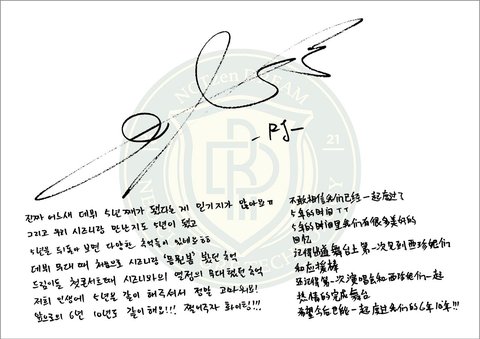 -RJ-
진짜 어느새 데뷔 5년째가 됐다는 게 믿기지가 않아요ㅠ
그리고 우리 시즈니랑 만난지도 5년이 됐고
5년을 되돌아 보면 다양한 추억들이 있네요ㅎㅎ
데뷔 무대 때 처음으로 시즈니랑 '응원봉' 봤던 추억
드림이들 첫 콘서트때 시즈니와의 열정의 무대 했던 추억
저희 인생에 5년을 같이 해주셔서 정말 고마워요!
앞으로의 6년 10년도 같이 해요!!! 쩰어주자 화이팅!!!
不敢相信我们已经一起度过了
5年的时间 ㅜㅜ
5年的时间里我们有很多美好的
回忆
记得出道舞台上第一次见到西珍他们
和应援棒
还记得第一次演唱会和西珍他们一起
热情的完成舞台
希望今后也能一起度过我们的6年10年!!!
NCTzen DREAM
21